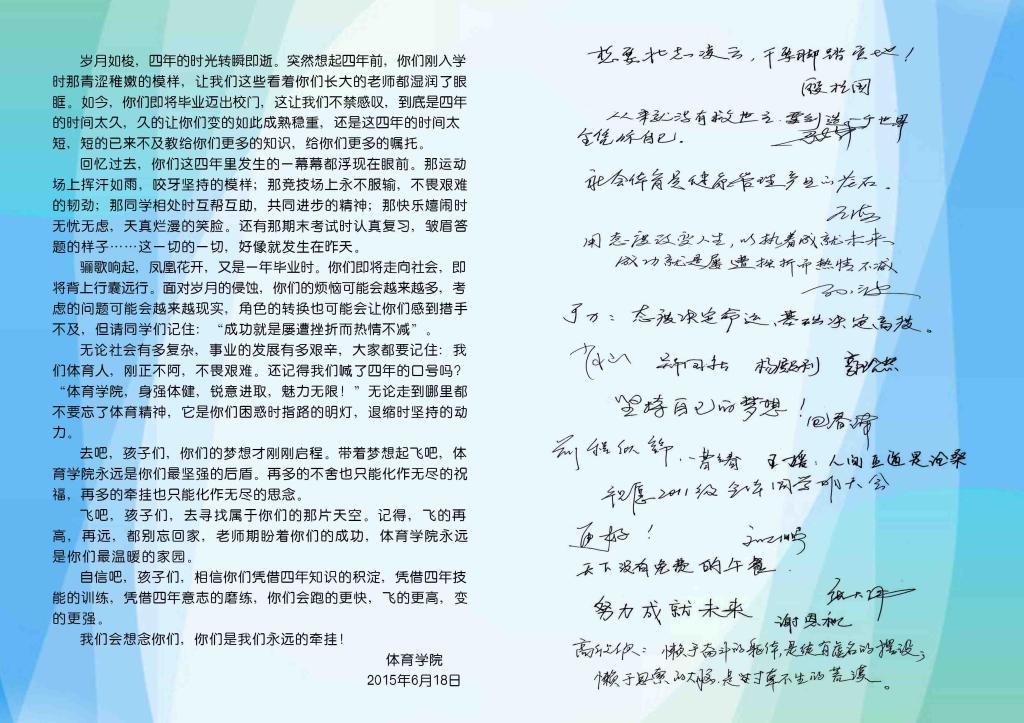 岁月如梭，四年的时光转瞬即逝。突然想起四年前，你们刚入学
时那青涩稚嫩的模样，让我们这些看着你们长大的老师都湿润了眼
眶。如今，你们即将毕业迈出校门，这让我们不禁感叹，到底是四年
的时间太久，久的让你们变的如此成熟稳重，还是这四年的时间太
短，短的已来不及教给你们更多的知识，给你们更多的嘱托。
回忆过去，你们这四年里发生的一幕幕都浮现在眼前。那运动
场上挥汗如雨，咬牙坚持的模样；那竞技场上永不服输，不畏艰难
的韧劲；那同学相处时互帮互助，共同进步的精神；那快乐嬉闹时
无忧无虑，天真烂漫的笑脸。还有那期末考试时认真复习，皱眉答
题的样子……这一切的一切，好像就发生在昨天。
骊歌响起，凤凰花开，又是一年毕业时。你们即将走向社会，即
将背上行囊远行。面对岁月的侵蚀，你们的烦恼可能会越来越多，考
虑的问题可能会越来越现实，角色的转换也可能会让你们感到措手
不及，但请同学们记住：“成功就是屡遭挫折而热情不减”。
无论社会有多复杂，事业的发展有多艰辛，大家都要记住：我
们体育人，刚正不阿，不畏艰难。还记得我们喊了四年的口号吗？
“体育学院，身强体健，锐意进取，魅力无限！”无论走到哪里都
不要忘了体育精神，它是你们困惑时指路的明灯，退缩时坚持的动
力。
去吧，孩子们，你们的梦想才刚刚启程。带着梦想起飞吧，体
育学院永远是你们最坚强的后盾。再多的不舍也只能化作无尽的祝
福，再多的牵挂也只能化作无尽的思念。
飞吧，孩子们，去寻找属于你们的那片天空。记得，飞的再
高，再远，都别忘回家，老师期盼着你们的成功，体育学院永远
是你们最温暖的家园。
自信吧，孩子们，相信你们凭借四年知识的积淀，凭借四年技
能的训练，凭借四年意志的磨练，你们会跑的更快，飞的更高，变
的更强。
我们会想念你们，你们是我们永远的牵挂！
体育学院
2015年6月18日
想要壮志凌云，干要脚踏实地！
从来就没有救世主
全凭你自己．
社会体育是健康管理产业的基石．
用态度改变人生，以执着成就未来
成功就是屡遭挫折而热情不减
态度决定命运，基础决定高度。
坚持自己的梦想！
前程似锦
人间正道是沧桑
祝愿2011级全体同学
天下没有免费的午餐．
努力成就未来
谢恩
懒于奋斗的躯体，是徒有虚名的摆设；
懒于思索的大脑，是寸草不生的荒漠。